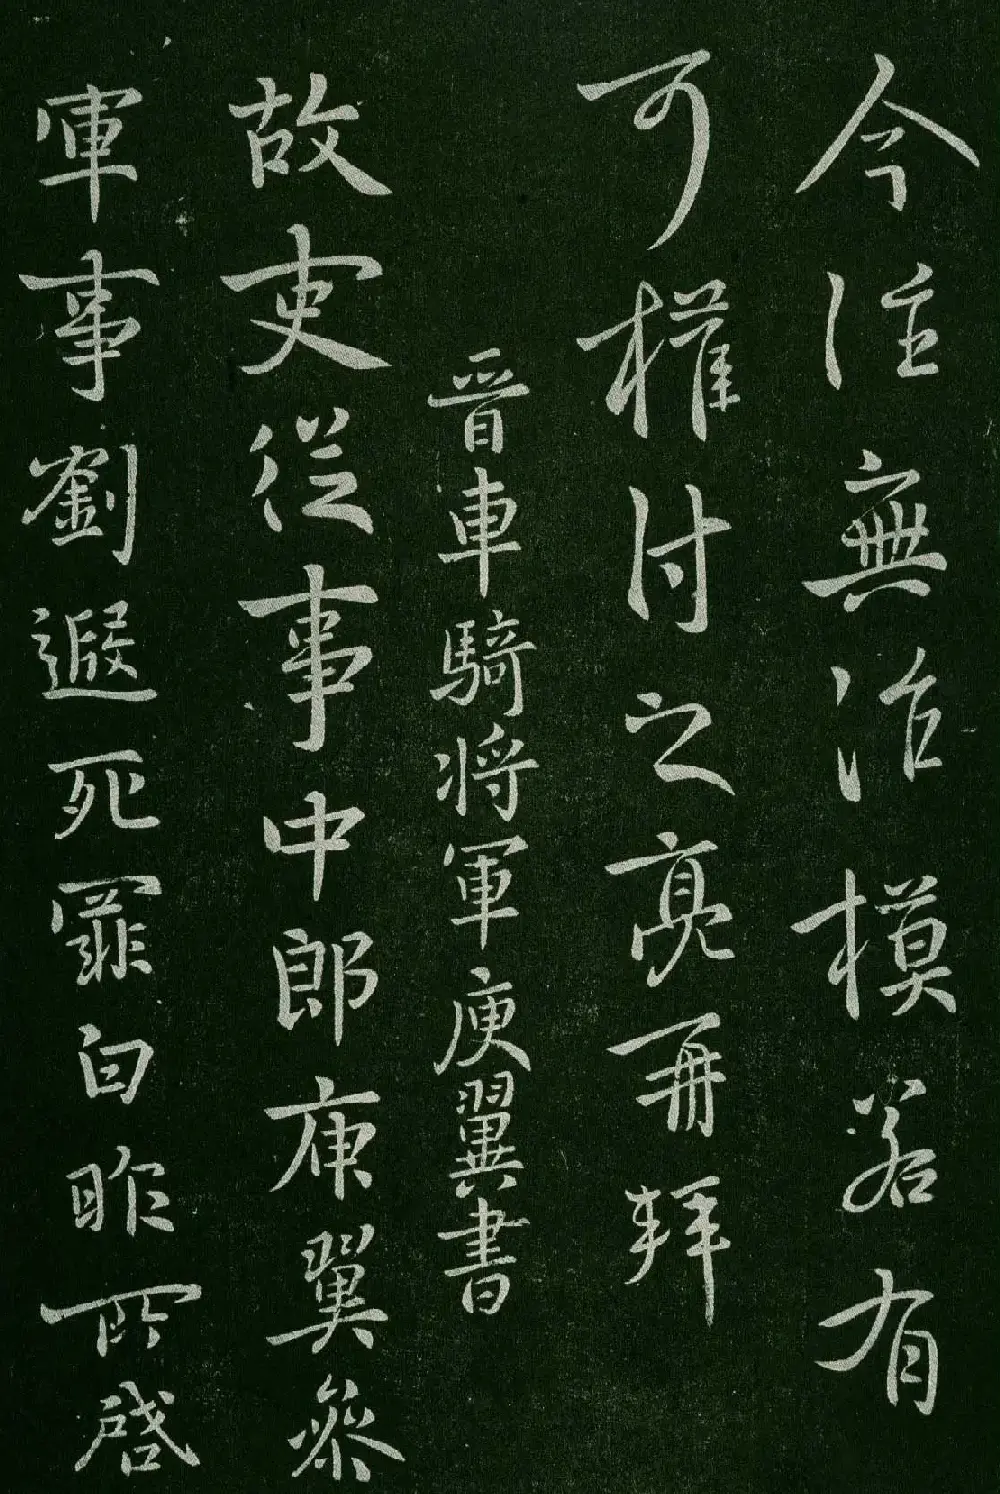 今注無治模若有
可權付之亮再拜
晉車騎將軍庾翼書
故吏從事中郎庾翼參
軍事劉遐死罪白昨所啓